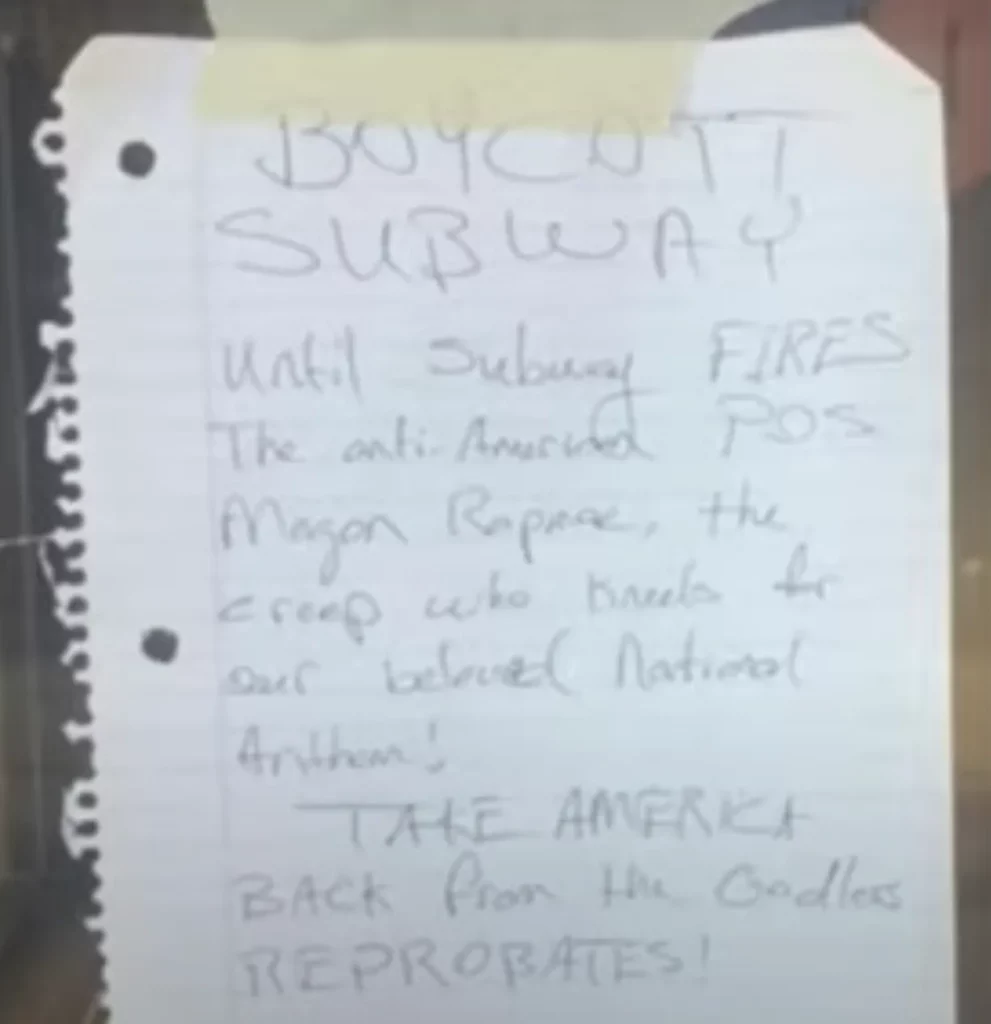 BOYCOTT
SUBWAY
Until Subway FIRES
The anti-American POS
Megan Rapinoe, the
creep who kneels for
our beloved National
Anthem!
TAKE AMERICA
BACK from the Godless
REPROBATES!